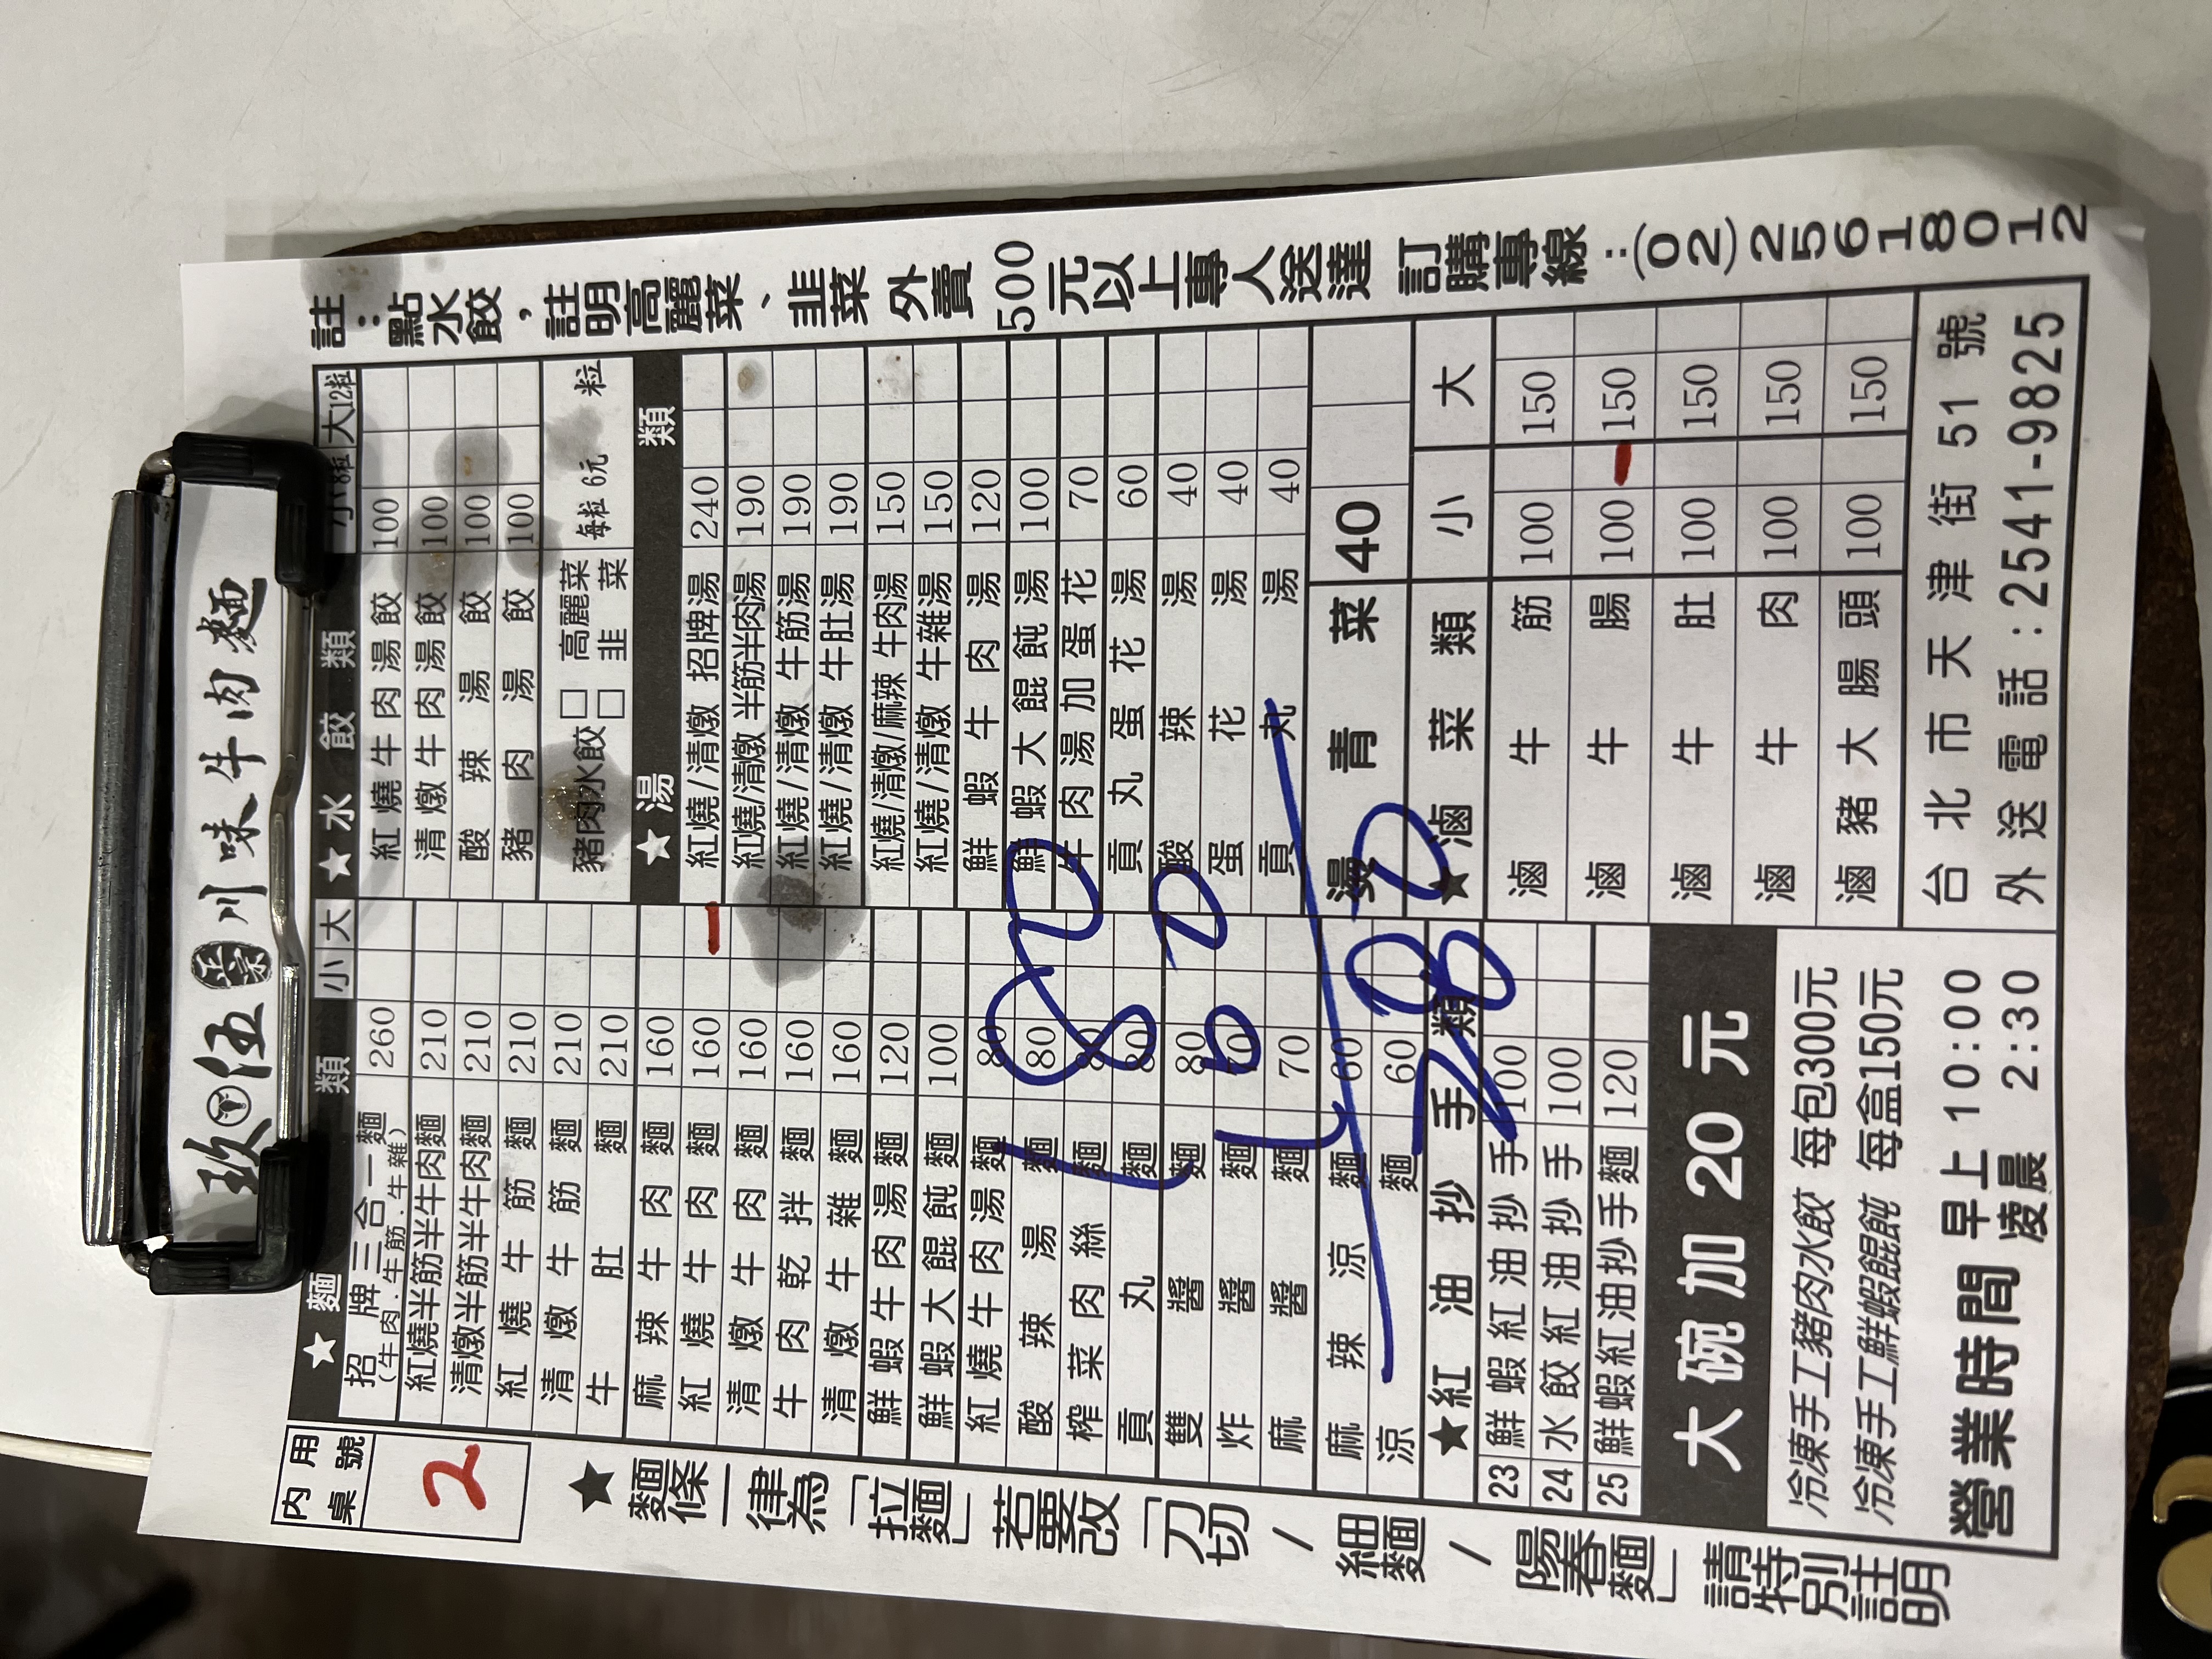 玖伍 正宗 川味牛肉麵
內用桌號
2
★麵類 小 大
招牌三合一麵 260
(牛肉.牛筋.牛雜)
紅燒半筋半牛肉麵 210
清燉半筋半牛肉麵 210
紅燒牛筋麵 210
清燉牛筋麵 210
牛肚麵 210
麻辣牛肉麵 160
紅燒牛肉麵 160 一
清燉牛肉麵 160
牛肉乾拌麵 160
清燉牛雜麵 160
鮮蝦牛肉湯麵 120
鮮蝦大餛飩麵 100
紅燒牛肉湯麵 80
酸辣湯麵 80
榨菜肉絲麵 80
貢丸麵 80
雙醬麵 80
炸醬麵 70
麻醬麵 70
麻辣涼麵 60
涼麵 60
★紅油抄手類
23 鮮蝦紅油抄手 100
24 水餃紅油抄手 100
25 鮮蝦紅油抄手麵 120
大碗加20元
冷凍手工豬肉水餃 每包300元
冷凍手工鮮蝦餛飩 每盒150元
營業時間 早上 10:00
凌晨 2:30
★水餃類 小8粒 大12粒
紅燒牛肉湯餃 100
清燉牛肉湯餃 100
酸辣湯餃 100
豬肉湯餃 100
豬肉水餃 □ 高麗菜 □ 韭菜 每粒 6元 粒
★湯類
紅燒/清燉 招牌湯 240
紅燒/清燉 半筋半肉湯 190
紅燒/清燉 牛筋湯 190
紅燒/清燉 牛肚湯 190
紅燒/清燉/麻辣 牛肉湯 150
紅燒/清燉 牛雜湯 150
鮮蝦牛肉湯 120
鮮蝦大餛飩湯 100
牛肉湯加蛋花 70
貢丸蛋花湯 60
酸辣湯 40
蛋花湯 40
貢丸湯 40
燙青菜 40
★滷菜類 小 大
滷牛筋 100 150
滷牛腸 100 一 150
滷牛肚 100 150
滷牛肉 100 150
滷豬大腸頭 100 150
台北市天津街51號
外送電話:2541-9825
180
100
280
★麵條一律為「拉麵」若要改「刀切/細麵/陽春麵」請特別註明
註:點水餃,註明高麗菜、韭菜 外賣500元以上專人送達 訂購專線:(02)25618012